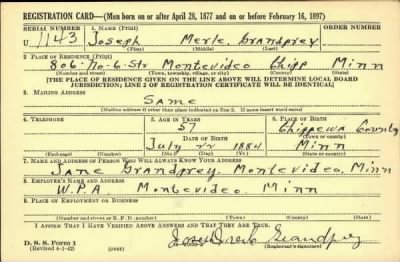 REGISTRATION CARD—(Men born on or after April 28, 1877 and on or before February 16, 1897)
SERIAL NUMBER 1. NAME (Print) ORDER NUMBER
U 1143 Joseph Merle Grandprey
(First) (Middle) (Last)
2. PLACE OF RESIDENCE (Print)
806-No-6-Str Montevideo Chipp Minn
(Number and street) (Town, township, village, or city) (County) (State)
[THE PLACE OF RESIDENCE GIVEN ON THE LINE ABOVE WILL DETERMINE LOCAL BOARD
JURISDICTION; LINE 2 OF REGISTRATION CERTIFICATE WILL BE IDENTICAL]
3. MAILING ADDRESS
Same
[Mailing address if other than place indicated on line 2. If same insert word same]
4. TELEPHONE 5. AGE IN YEARS 6. PLACE OF BIRTH
57 Chippewa County
DATE OF BIRTH (Town or county)
July 22 1884 Minn
(Exchange) (Number) (Mo.) (Day) (Yr.) (State or country)
7. NAME AND ADDRESS OF PERSON WHO WILL ALWAYS KNOW YOUR ADDRESS
Jane Grandprey, Montevideo, Minn
8. EMPLOYER'S NAME AND ADDRESS
W.P.A. Montevideo Minn
9. PLACE OF EMPLOYMENT OR BUSINESS
(Number and street or R. F. D. number) (Town) (County) (State)
I AFFIRM THAT I HAVE VERIFIED ABOVE ANSWERS AND THAT THEY ARE TRUE.
D. S. S. Form 1
(Revised 4-1-42) (over) Joseph Merle Grandprey
(Registrant's signature)